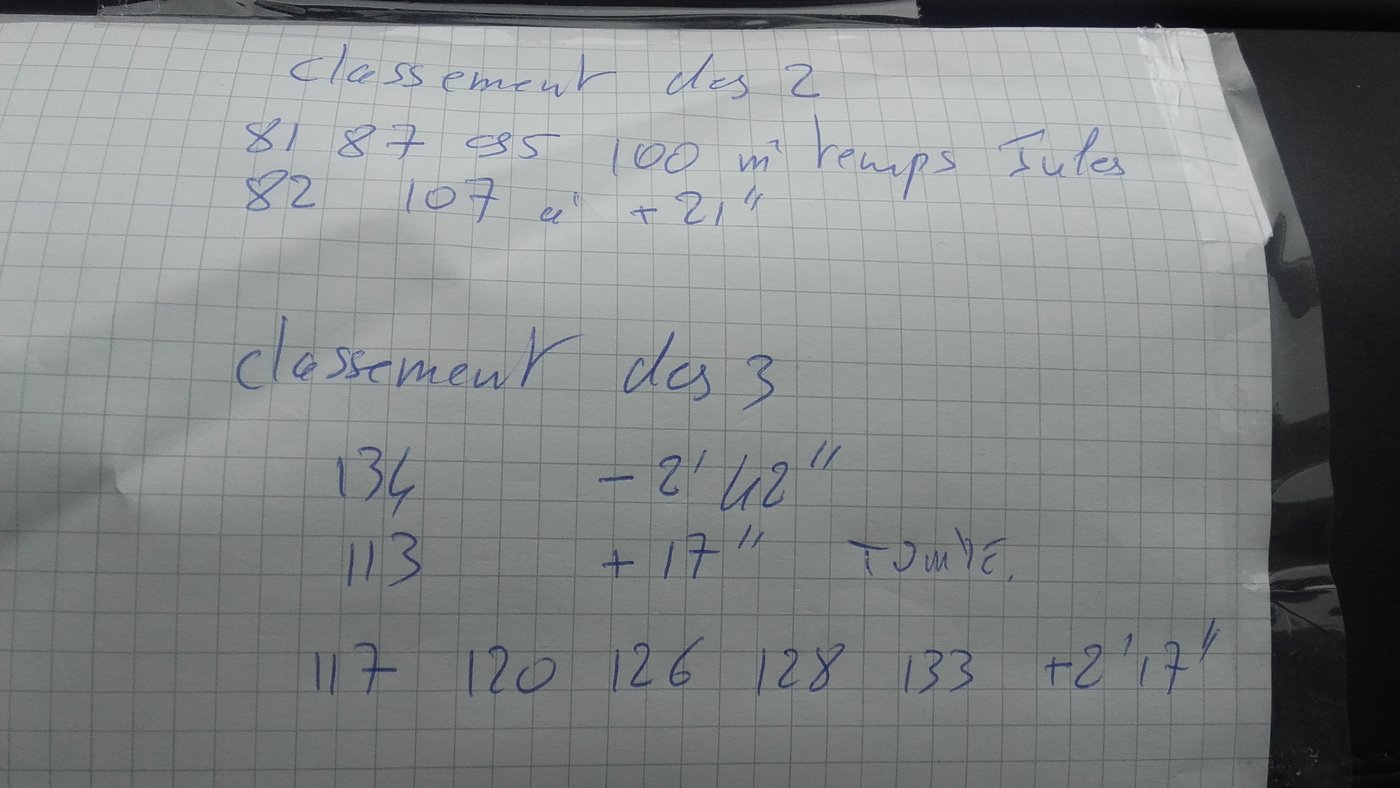 classement des 2
81 87 95 100 m̂ temps Jules
82 107 à + 21"
classement des 3
134 - 2' 42"
113 + 17" TOMBE.
117 120 126 128 133 +2'17"